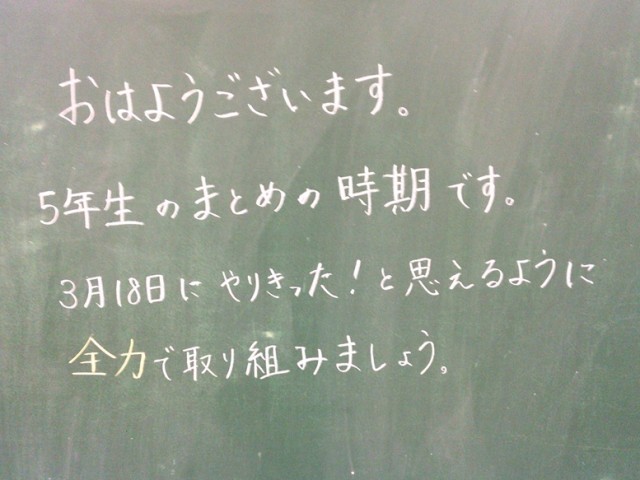 おはようございます。
5年生のまとめの時期です。
3月18日にやりきった!と思えるように
全力で取り組みましょう。